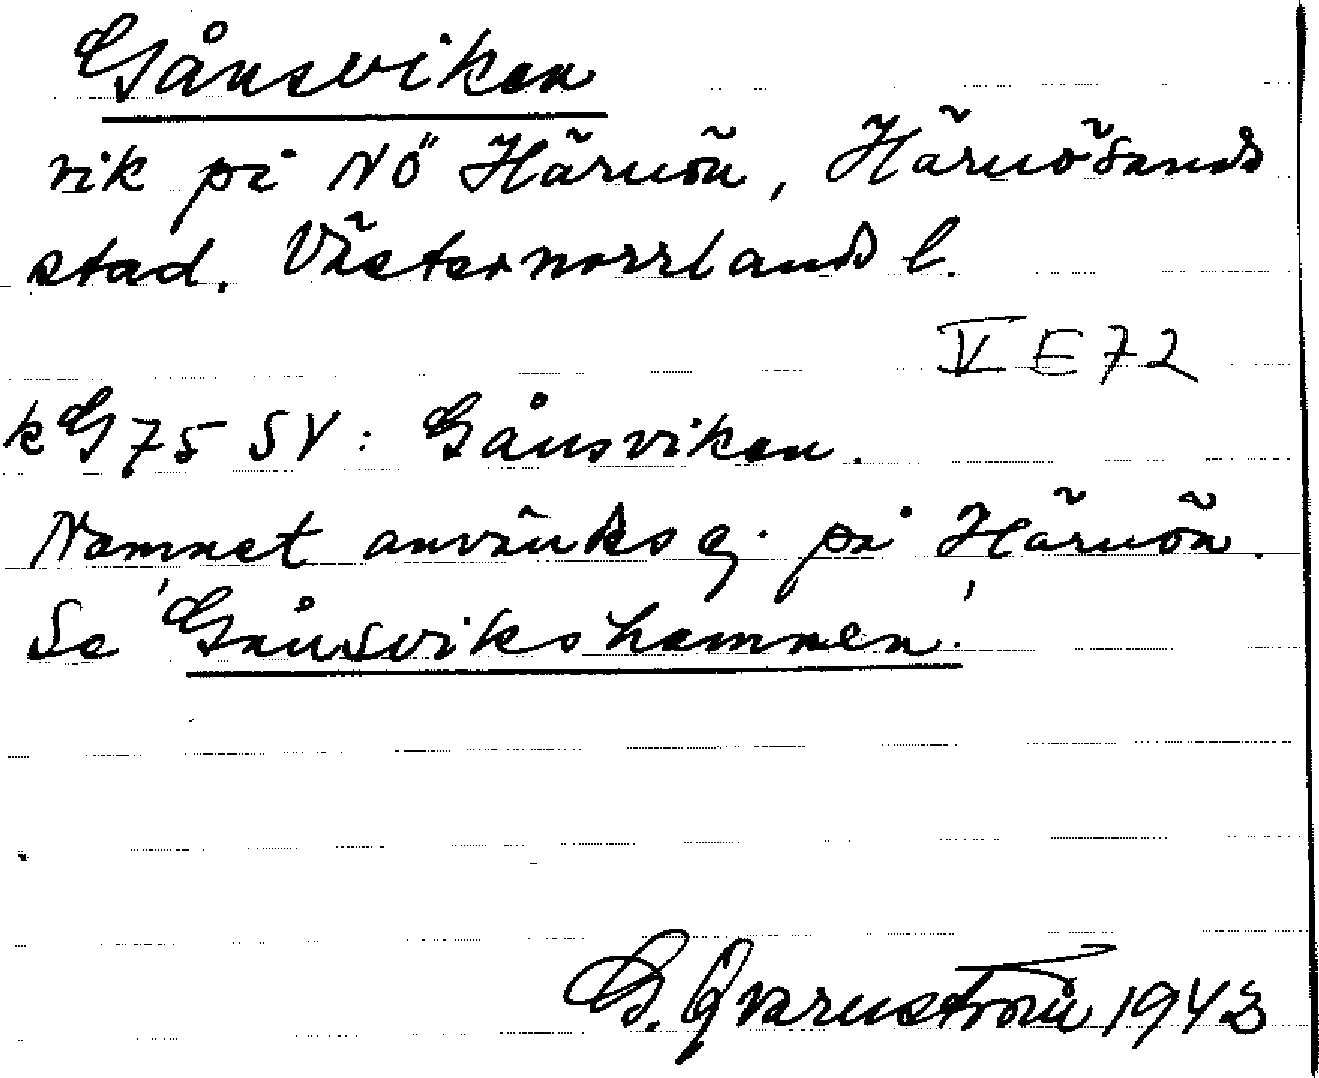 Gånsviken
vik på NÖ Härnön, Härnösands
stad. Västernorrlands l.
V E 72
k G 75 SV: Gånsviken.
Namnet användes ej på Härnön.
Se 'Gånsvikshamnen.'
G. Qvarnström 1943